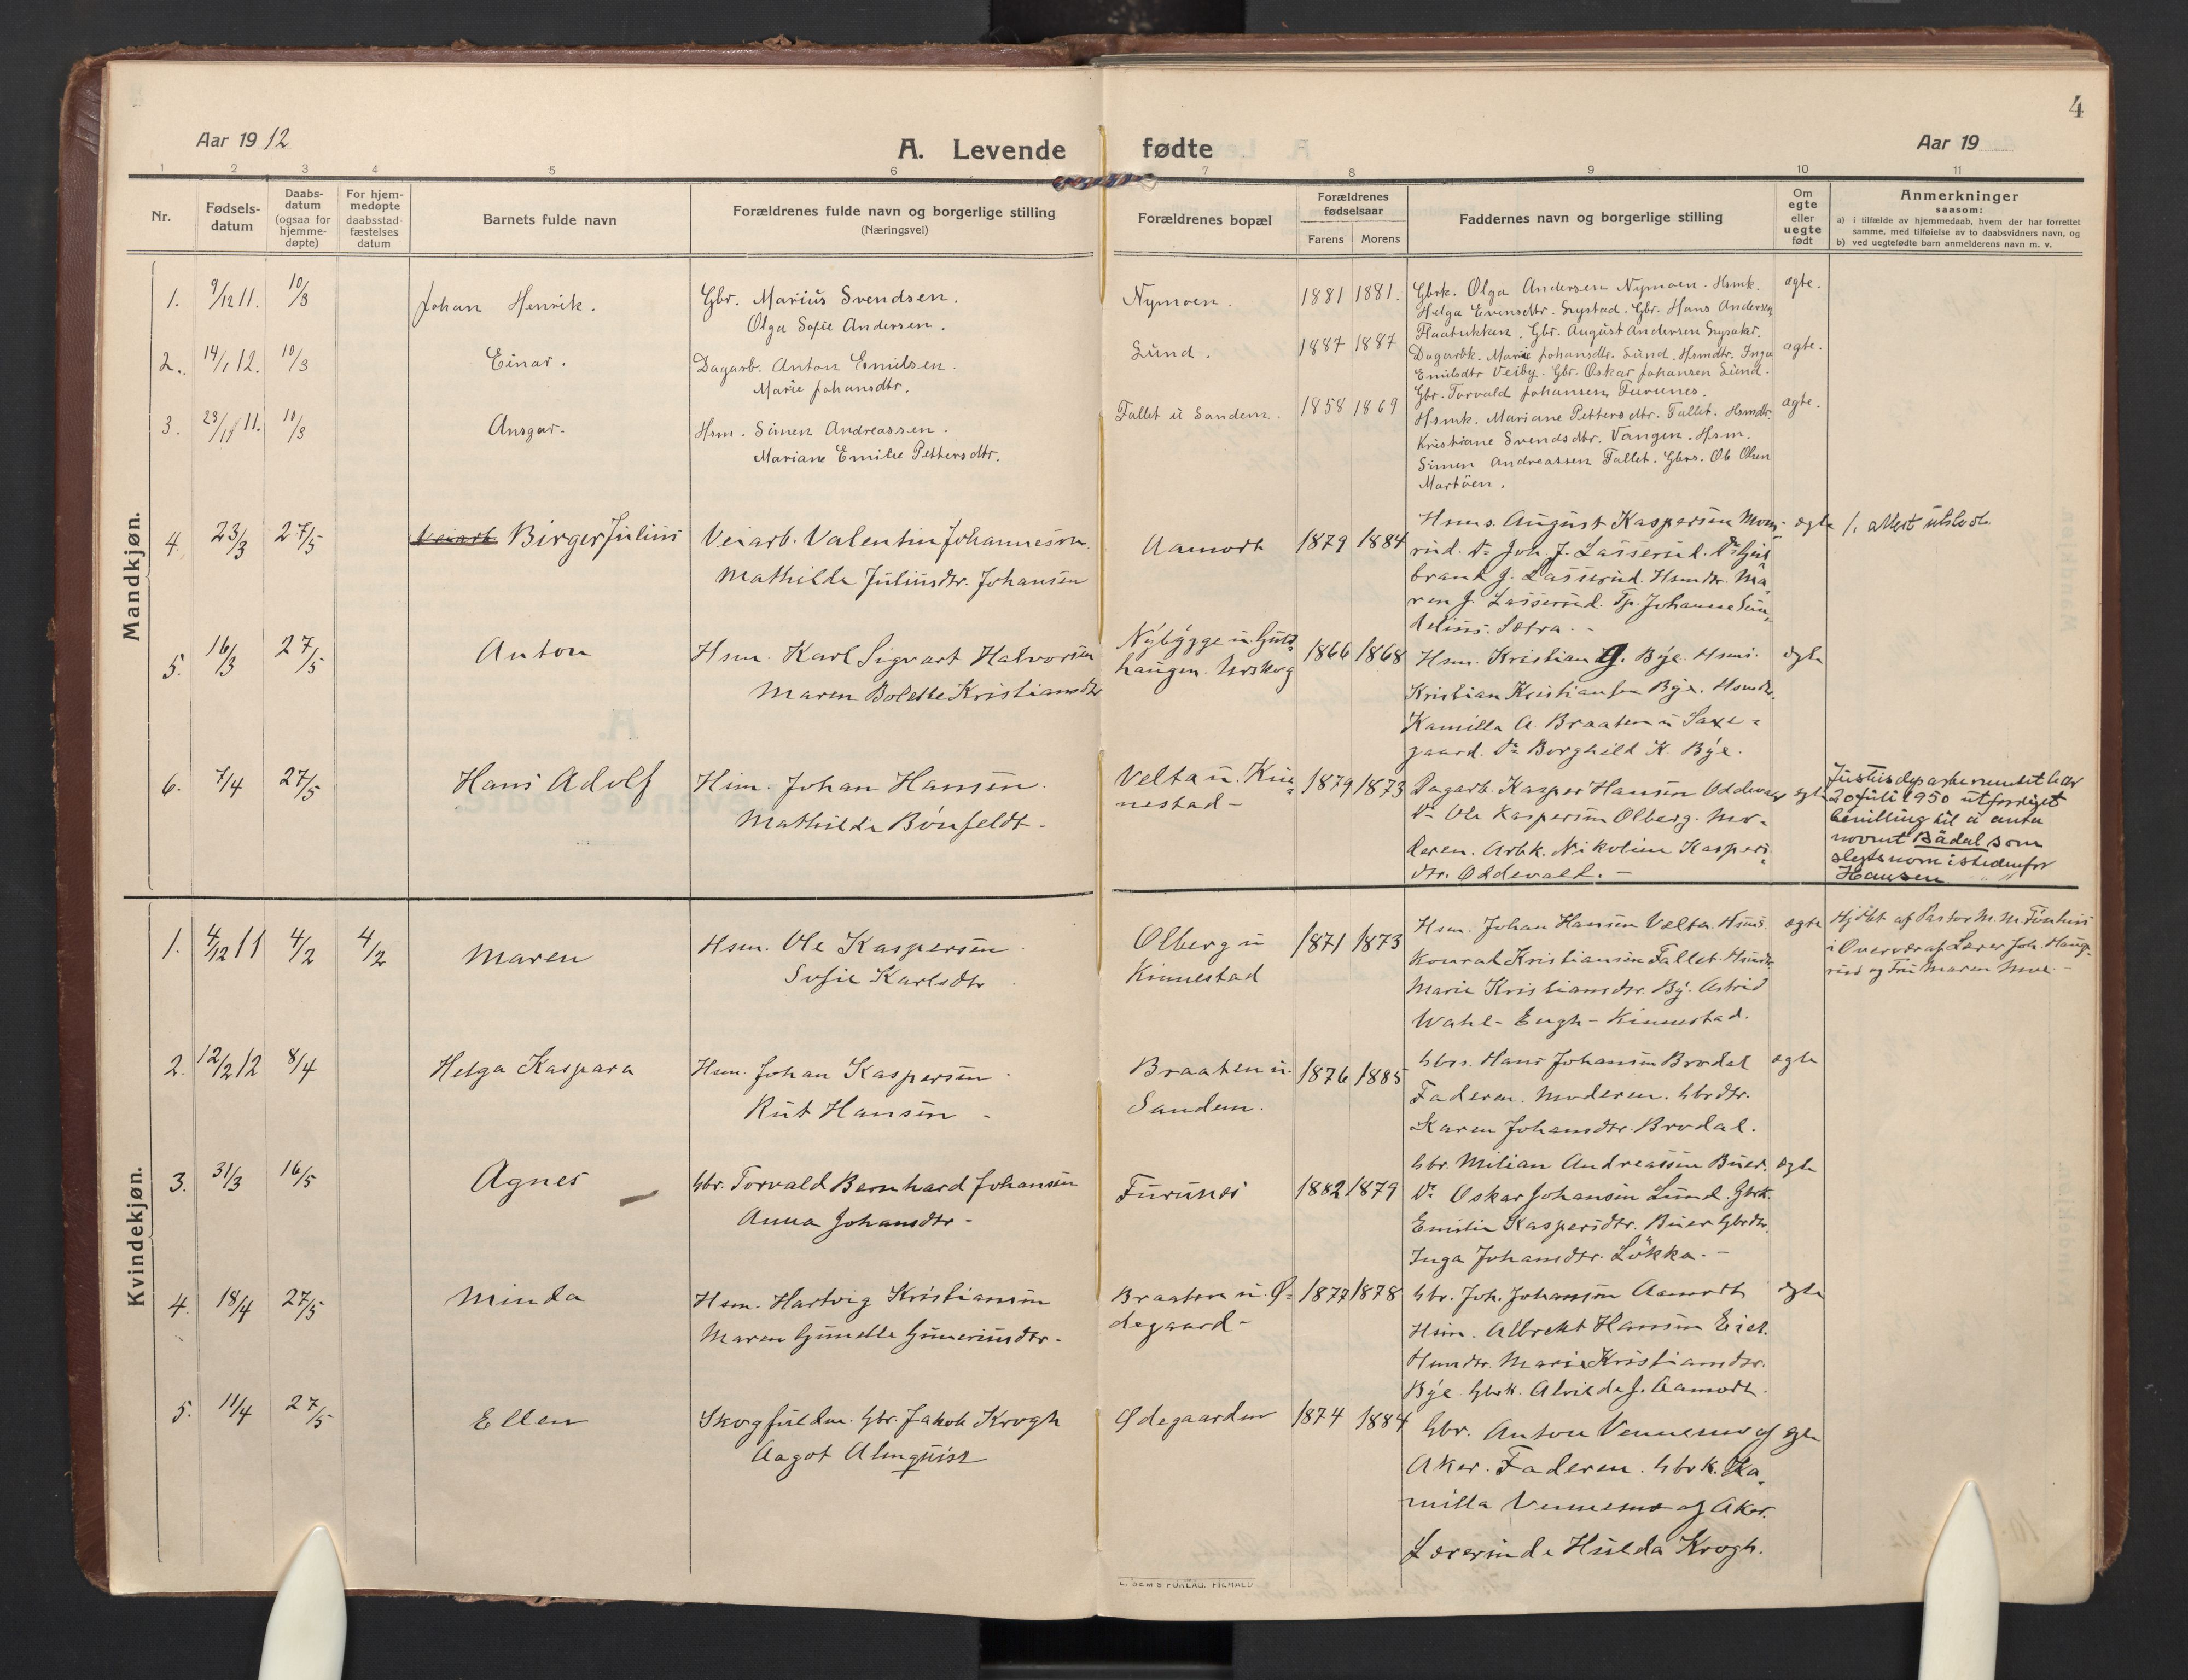 4
Aar 1912
A. Levende fødte
Aar 19
1 2 3 4 5 6 7 8 9 10 11
Nr.
Fødsels-
datum
Daabs-
datum
(ogsaa for
hjemme-
døpte)
For hjem-
medøpte
daabsstad-
fæstelses
datum
Barnets fulde navn
Forældrenes fulde navn og borgerlige stilling
(Næringsvei)
Forældrenes bopæl
Forældrenes
fødselsaar
Farens Morens
Faddernes navn og borgerlige stilling
Om
egte
eller
uegte
født
Anmerkninger
saasom:
a) i tilfælde av hjemmedaab, hvem der har forrettet
samme, med tilføielse av to daabsvidners navn, og
b) ved uegtefødte barn anmelderens navn m. v.
Mandkjøn.
1. 9/12 11. 10/3 Johan Henrik. Gbr. Marius Svendsen. Nymoen. 1881 1881. Gbrk. Olga Andersen Nymoen. Hsmk. egte.
Olga Sofie Andersen. Helga Evensdtr. Hans Andersen
Flaatukken. Gbr. August Andersen
2. 14/1 12. 10/3 Einar. Dagarb. Anton Emilsen. Lund. 1887 1887 Dagarbk. Marie Johansdtr. Lund. Hsmdtr. Inga egte.
Marie Johansdtr. Emilsdtr Veiby. Gbr. Oskar Johansen Lund.
Gbr. Torvald Johansen Furunes.
3. 23/11 11. 10/3 Ansgar. Hsm. Simen Andreassen. Fallet u Sandem. 1858 1869 Hsmk. Mariane Pettersdtr. Fallet. Hsmdtr. egte.
Mariane Emilie Pettersdtr. Kristiane Svendsdtr. Vangen. Hsm.
Simen Andreassen Fallet. Gbrs. Ole Olsen
Martöen.
4. 23/3 27/5 Veiarb. Birger Julius Veiarb. Valentin Johannesen Aamodt 1879 1884 Hsms. August Kaspersen Mom- egte 1. attest utstedt.
Mathilde Juliusdtr. Johansen rud. Do Joh. J. Lasserud. Do Gul
brand J. Lasserud. Hsmdtr. Ma
ren J. Lasserud. Tp. Johanne
Sætra.
5. 16/3 27/5 Anton Hsm. Karl Sigvart Halvorsen Nybygge u. Guls 1866 1868 Hsm. Kristian G. Bye. Hsms. egte
Maren Bolette Kristiansdtr haugen. Urskog Kristian Kristiansen Bye. Hsmdtr.
Kamilla A. Braaten u Saxe-
gaard. Do Borghild K. Bye.
6. 7/4 27/5 Hans Adolf Hsm. Johan Hansen. Velta u. Kin 1879 1873 Dagarb. Kasper Hansen Oddevald egte
Mathilde Bonfeldt. nestad Do Ole Kaspersen Olberg. Mo-
deren. Arbk. Nikoline Kaspers
dtr. Oddevald.
Justisdepartementet har
20 juli 1950 utferdiget
bevilling til å anta
navnet Bådal som
slektsnavn istedenfor
Hansen
Kvindekjøn.
1. 4/12 11 4/2 4/2 Maren Hsm. Ole Kaspersen Olberg u 1871 1873 Hsm. Johan Hansen Velta. Hsms. egte Hjdøbt af Pastor M. M.
Sofie Karlsdtr Kinnestad Konrad Kristiansen Fallet. Hsmdtr. i Overvær af Lærer Joh. Haug-
Marie Kristiansdtr. By. Astrid rud og Fru Maren Moe.
Wahl-Engh-Kinnestad.
2. 12/2 12 8/4 Helga Kaspara Hsm. Johan Kaspersen Braaten u. 1876 1885 Gbrs. Hans Johansen Brodal egte
Rut Hansen Sandem. Faderen. Moderen. Gbrdtr.
Karen Johansdtr. Brodal.
3. 31/3 16/5 Agnes Gbr. Torvald Bernhard Johansen Furunes 1882 1879 Gbr. Milian Andreassen Buer. egte
Anna Johansdtr Do Oskar Johansen Lund. Gbrk.
Emilie Kaspersdtr. Buer Gbrdtr.
Inga Johansdtr. Lökka.
4. 18/4 27/5 Minda Hsm. Hartvig Kristiansen Braaten u. Ø- 1877 1878 Gbr. Joh. Johansen Aamodt egte
Maren Gunelle Guneriusdtr. degaard Hsm. Albrekt Hansen Eid.
Hsmdtr. Marie Kristiansdtr.
Bye. Gbrk. Alvilde J. Aamodt.
5. 11/4 27/5 Ellen Skogfuldm. Gbr. Jakob Krogh Ødegaarden 1874 1884 Gbr. Anton Vennemo af egte
Aagot Almquist Aker. Faderen. Gbrk. Ka
milla Vennemo af Aker.
Lærerinde Hulda Krogh.